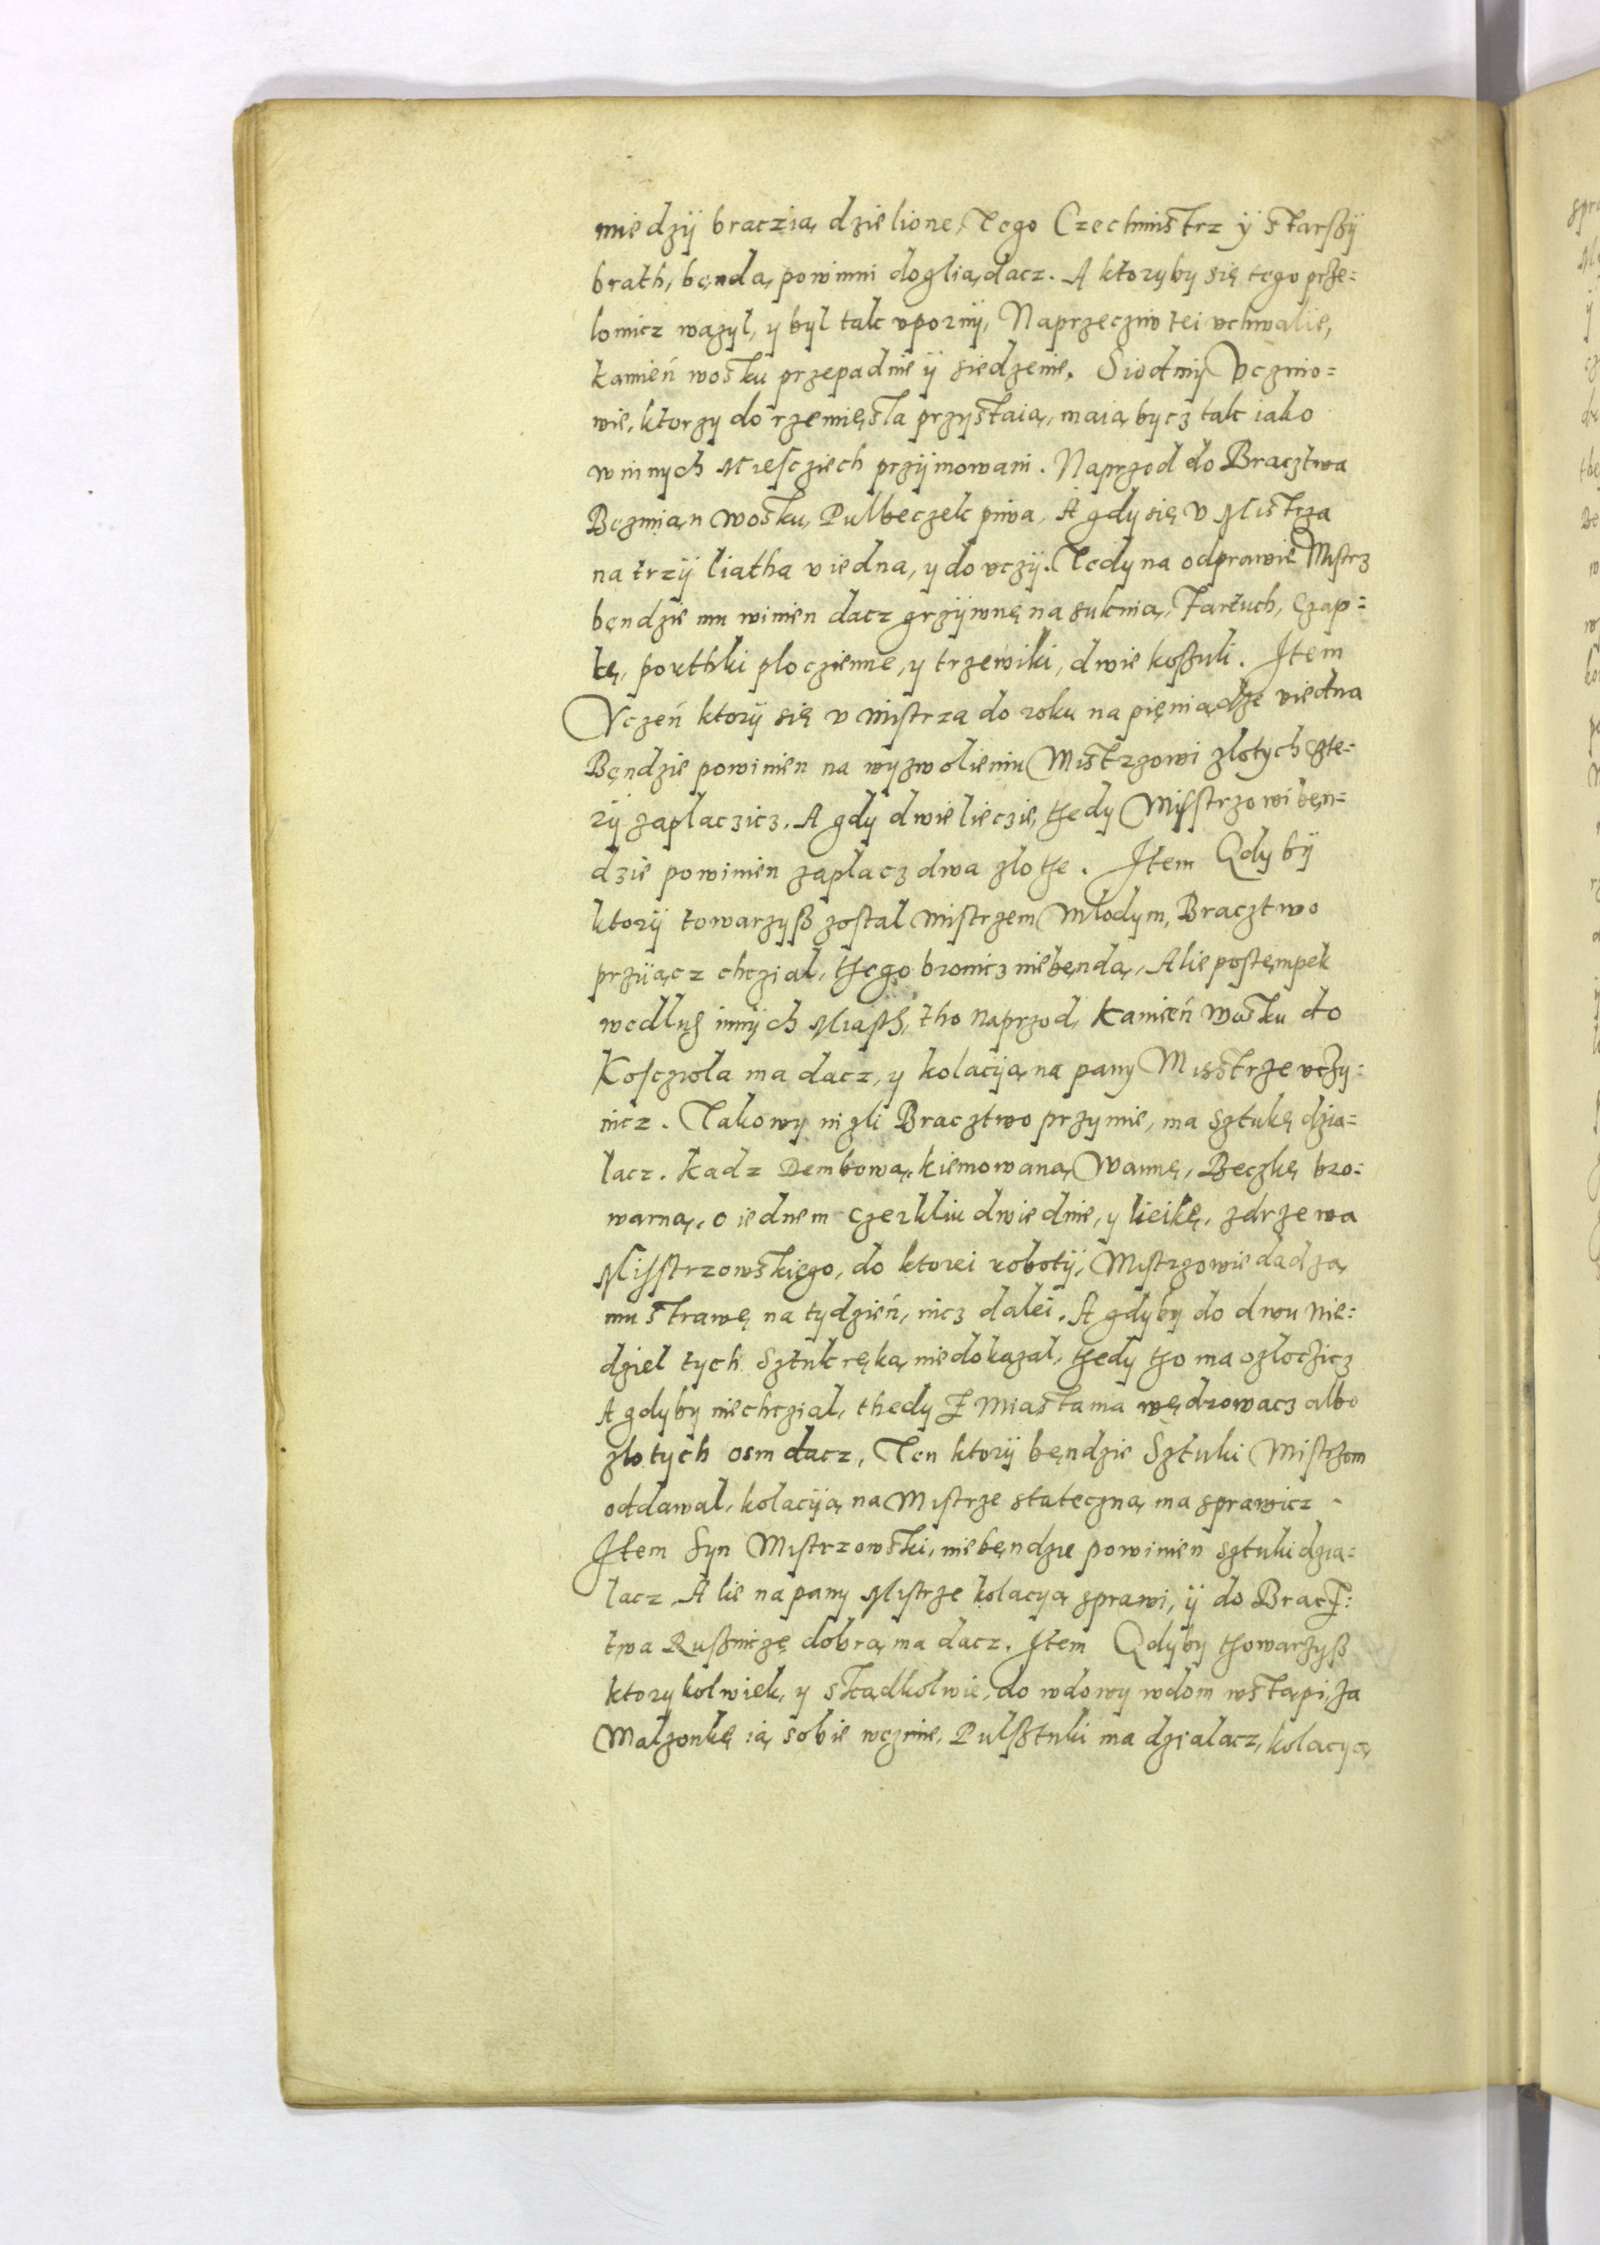 miedzÿ braczią dzielione, Tego Czechmistrz ÿ starßÿ
brath, bęnda, powinni dogliądacz. A ktoryby się tego prze=
lomicz ważyl, y byl tak vpornÿ, Naprzeczÿw tei vchwalie,
kamień wosku przepadnie ÿ siedzenie. Siodmÿ Vcznio=
wie, ktorzy do rzemięsla przystaią, maią bycz tak iako
w innych Miesciech przÿmowani. Naprzod do Bracztwa
Bezmian wosku, Pulbeczek piwa, A gdy się v Mistrza
na trzÿ liatha viedna, y douczÿ. Tedy na odprawie Mistrz
bęndzie mu winien dacz grzÿwnę na suknia, Fartuch, Czap=
kę, porthki ploczienne, y trzewiki, dwie koßuli. Item
Vczeń ktorÿ się v mistrza do roku na pięniądze viedna
Bęndzie powinien na wyzwolieniu Mistrzowi zlotych czte=
rÿ zaplaczicz. A gdy dwie lieczie, thedy Misstrzowi bęn=
dzie powinien zaplacz dwa zlothe. Item Gdy bÿ
ktorÿ towarzyß zostal mistrzem Mlodym, Bracztwo
przÿiącz chczial, thego bronicz niebęndą, Alie postęmpek
wedlug innych Miasth, tho naprzod, Kamień Wosku do
Kosczola ma dacz, y kolacÿą na pany Misstrze vczy=
nicz. Takowy nizli Bracztwo przymie, ma sztukę dzia=
lacz. Kadz Dembową, kiemowaną Wannę, Beczkę bro=
warną, o iednem czerkliu dwie dnie, y lieikę, zdrzewa
Misstrzowskięgo, do ktorei robotÿ, Mistrzowie dadzą
mu strawę na tydzień, nicz dalei. A gdyby do dwu nie=
dziel tych Sztuk ręką nie dokazal, thedy tho ma ozloczicz
A gdyby niechczial, thedy z Miasta ma wędrowacz albo
zlotych osm dacz, Ten ktorÿ bęndzie Sztuki Mistrzom
oddawal, kolacÿą na Mistrze stateczną ma sprawicz.
Item Syn Mistrzowski, niebęndzie powinien sztuki dzia=
lacz, Alie na pany Mistrze kolacyą sprawi, ÿ do Bracz=
twa Rußniczę dobrą ma dacz. Item Gdyby thowarzyß
ktorykolwiek, y skądkolwie, do wdowy wdom wstąpi, za
Malzonkę ią sobie wezmie, Pulßtuki ma dzialacz, kolacyą